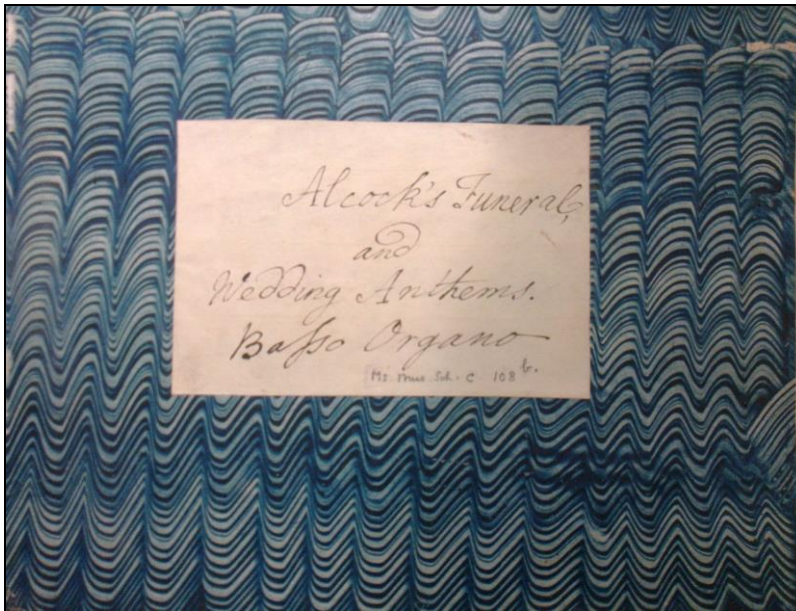 Alcock's Funeral,
and
Wedding Anthems.
Baſso Organo
Ms. Mus. Sch. C 108 b.